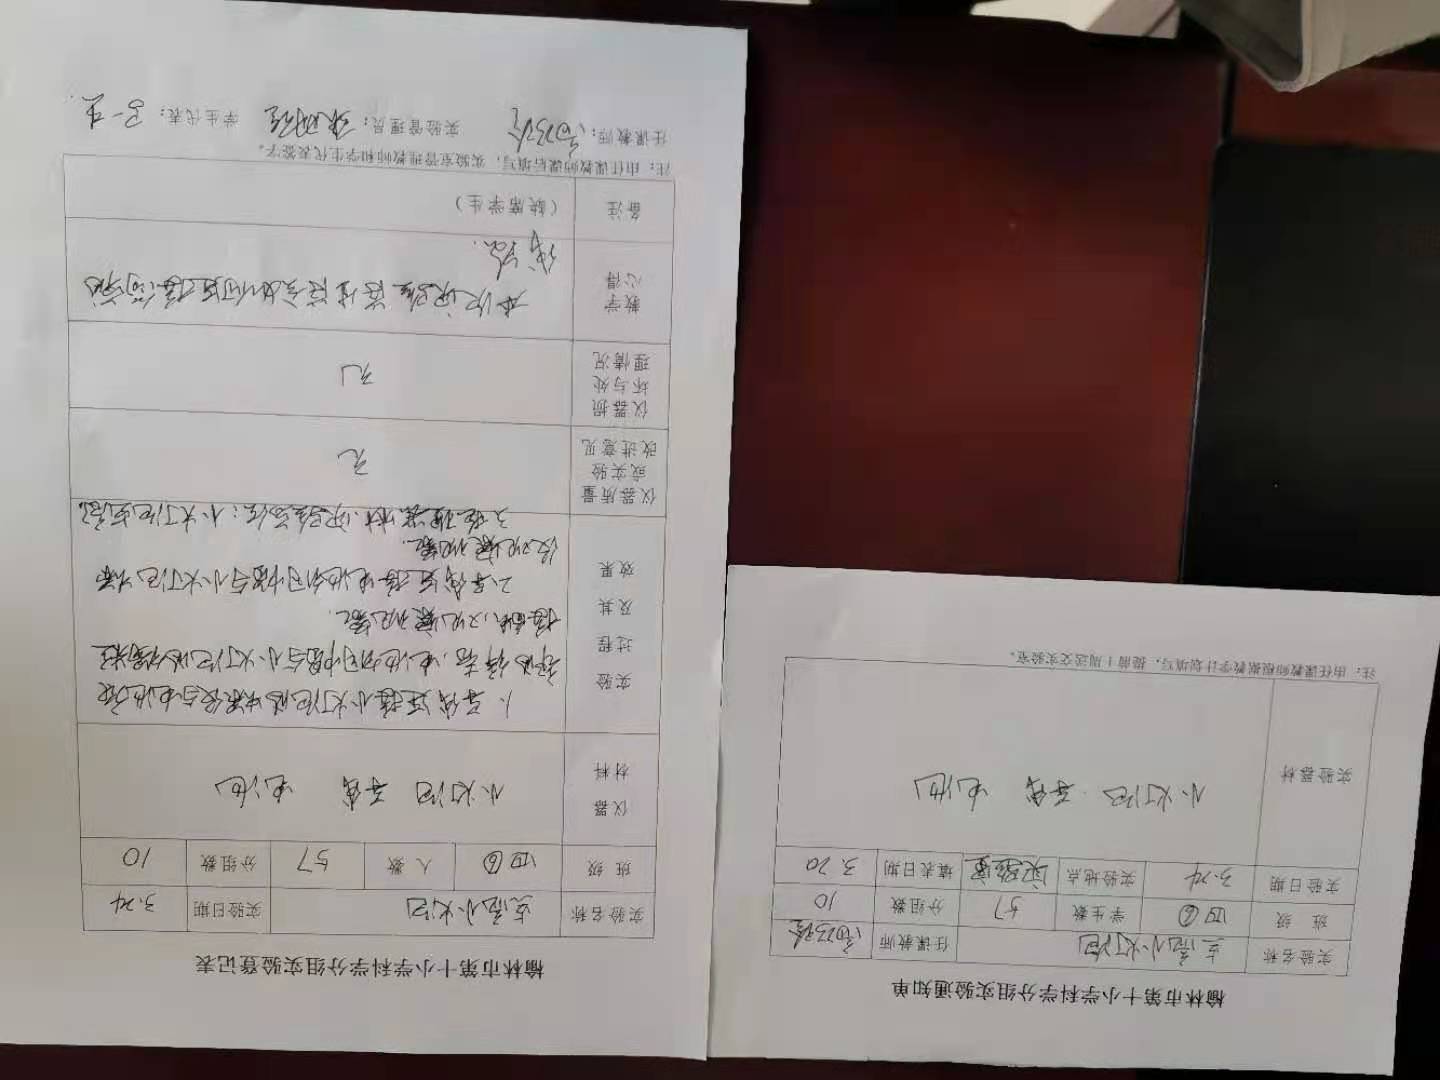 榆林市第十小学科学分组实验通知单
实验名称 点亮小灯泡 任课教师
班 级 四⑥ 学生数 57 分组数 10
实验日期 3.24 实验地点 实验室 填表日期 3.20
实验器材 小灯泡 导线 电池
注：由任课教师根据教学计划填写，提前1周送交实验室。
榆林市第十小学科学分组实验登记表
实验名称 点亮小灯泡 实验日期 3.24
班 级 四⑥ 人 数 57 分组数 10
仪器
材料
小灯泡 导线 电池
实验
过程
及其
效果
1、导线连接小灯泡的
电池切口中部与小灯泡的
接触，观察现象。
2、导线连接电池切口中部与小灯泡
观察现象。
3、整理器材，实验结论：小灯泡点亮。
仪器质量
或实验
改进意见
无
仪器损
坏与处
理情况
无
教学
心得
本次实验
备注
（缺席学生）
注：由任课教师课后填写，实验室管理教师和学生代表签字。
任课教师： 实验管理员： 学生代表：